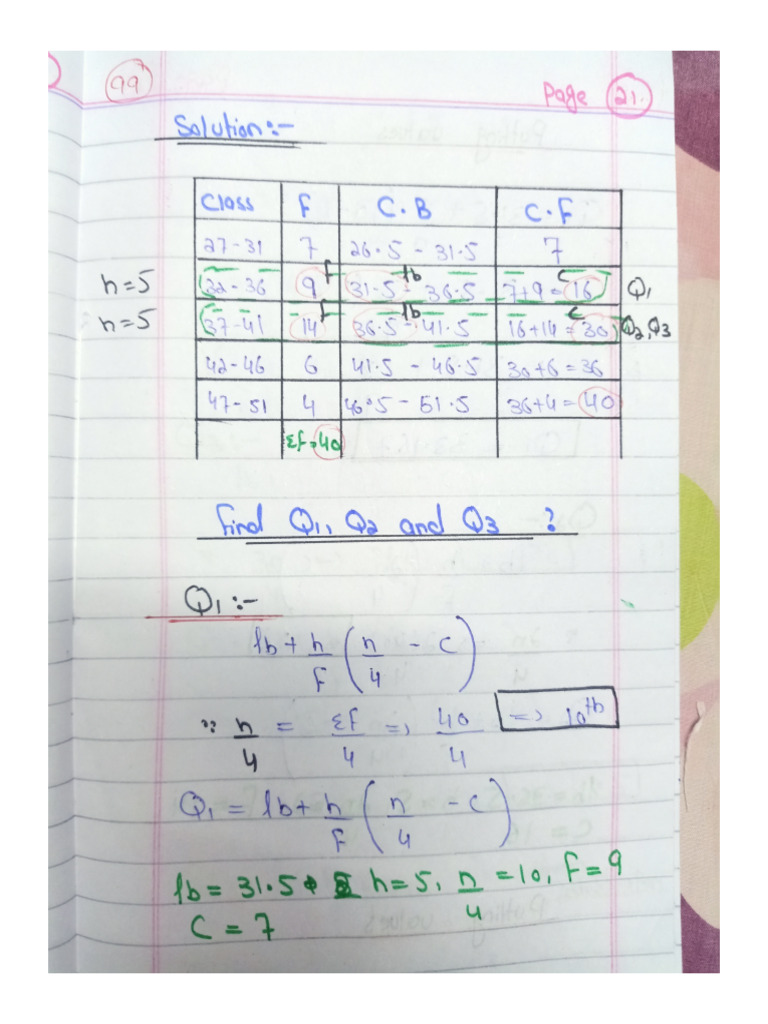 99
Page 21.
Solution:-
Class F C.B C.F
27-31 7 26.5 - 31.5 7
h=5 32-36 9 f 31.5 - 36.5 lb 7+9=16 C Q1
h=5 37-41 14 f 36.5 - 41.5 lb 16+14=30 C Q2,Q3
42-46 6 41.5 - 46.5 30+6=36
47-51 4 46.5 - 51.5 36+4=40
Σf=40
find Q1, Q2 and Q3 ?
Q1:-
lb + h/F (n/4 - C)
∵ n/4 = Σf/4 => 40/4 => 10th
Q1 = lb + h/F (n/4 - C)
lb = 31.5 h=5, n/4 = 10, F=9
C = 7